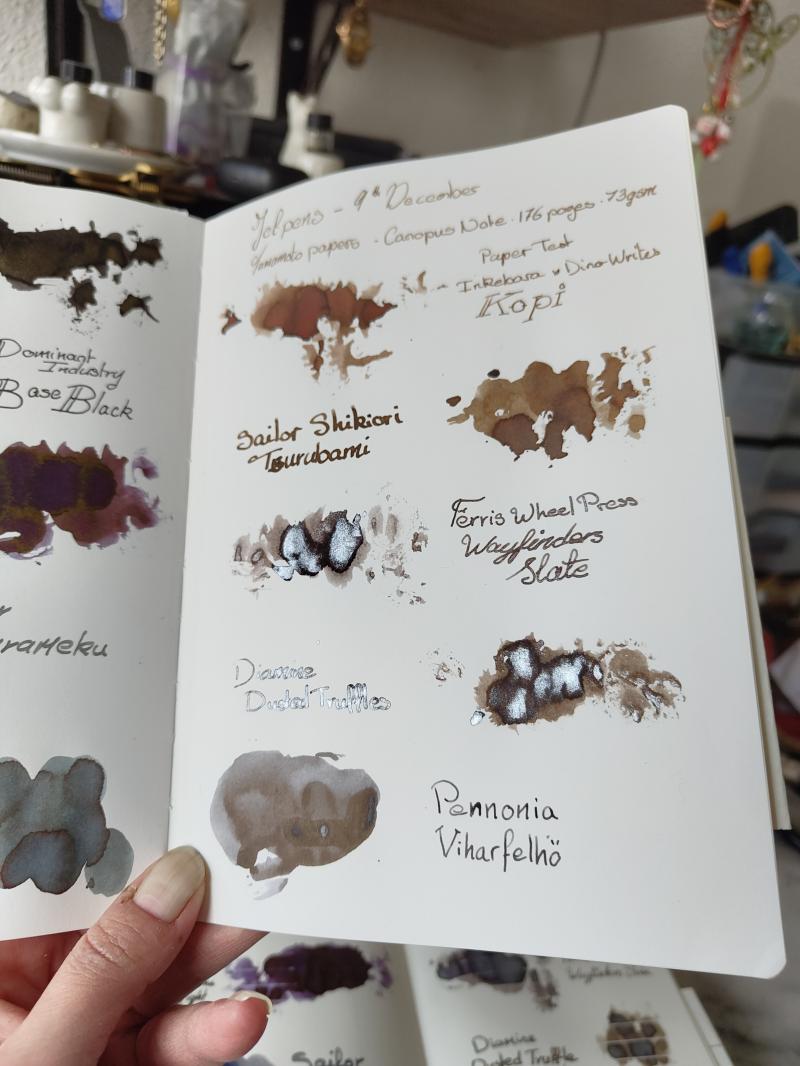 Dominant
Industry
Base Black
Jetpens - 9th December
Yamamoto papers - Canopus Note - 176 pages - 73gsm
Paper Test
Inkebara x Dino Writes
Kopi
Sailor Shikiori
Tsurubami
Ferris Wheel Press
Wayfinders
Slate
Diamine
Dusted Truffles
Pennonia
Viharfelhő
Sailor
Diamine
Dusted Truffle